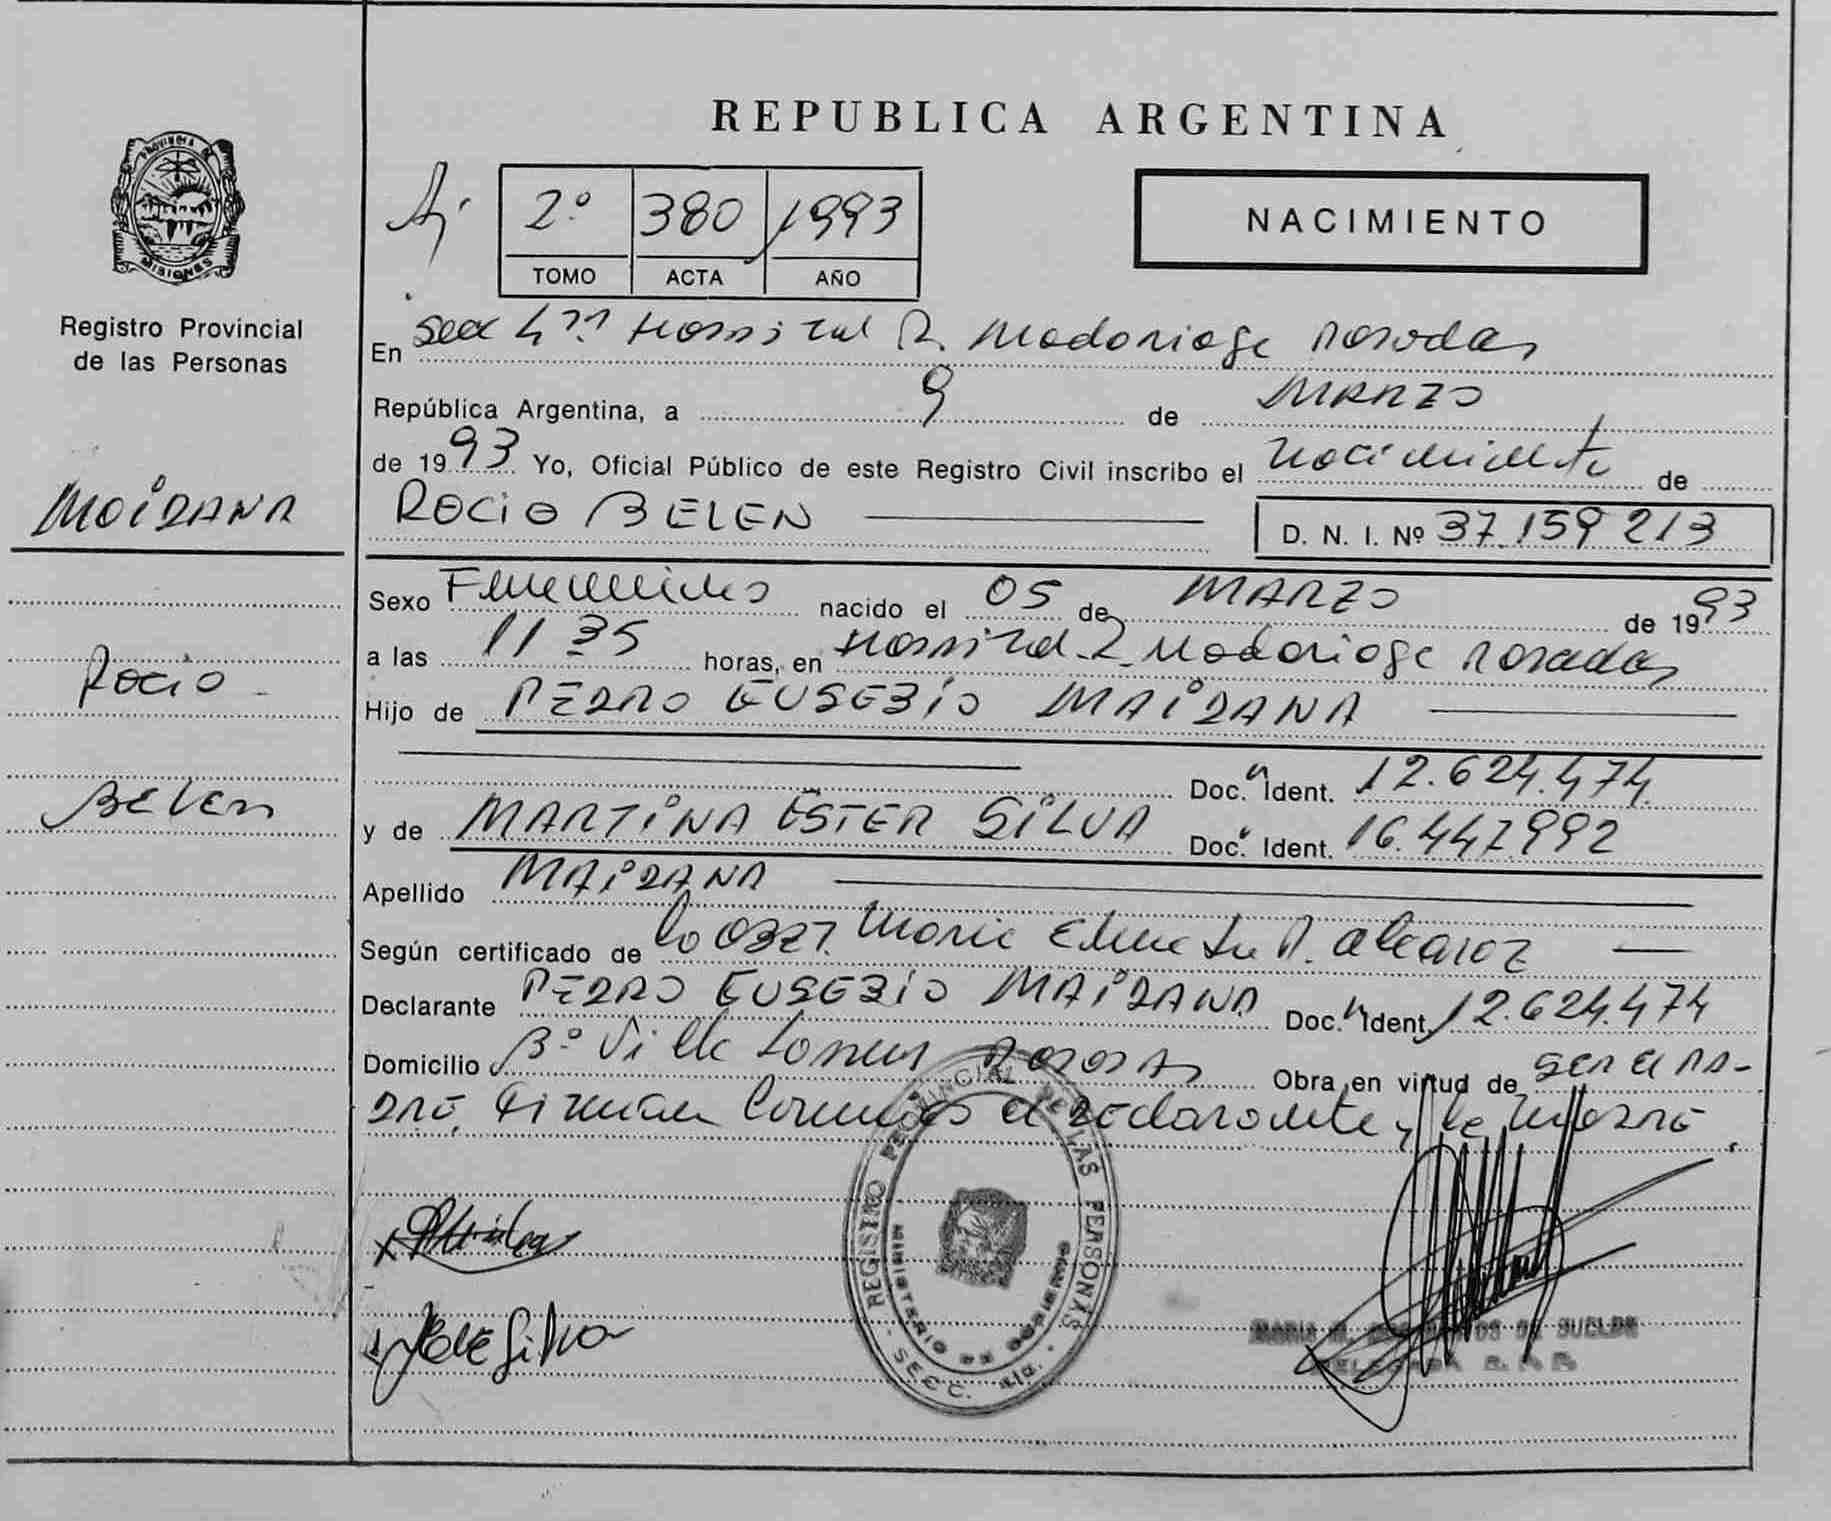 REPUBLICA ARGENTINA
PROVINCIA DE MISIONES
Registro Provincial
de las Personas
2º 380 1993
TOMO ACTA AÑO
NACIMIENTO
En Secc 4ta Hospital R. Madariaga Posadas
República Argentina, a 9 de MARZO
de 1993 Yo, Oficial Público de este Registro Civil inscribo el nacimiento de
ROCIO BELEN D. N. I. Nº 37.159 213
MAIDANA
Rocio
Belen
Sexo Femenino nacido el 05 de MARZO de 1993
a las 11 35 horas, en Hospital R. Madariaga Posadas
Hijo de PEDRO EUSEBIO MAIDANA
Doc. Ident. 12.624.474
y de MARTINA ESTER SILVA Doc. Ident. 16.447.992
Apellido MAIDANA
Según certificado de la OBST. Maria Elena A. Alcaroz
Declarante PEDRO EUSEBIO MAIDANA Doc. Ident. 12.624.474
Domicilio Bº Villa Posadas Obra en virtud de SER EL PA-
DRE. Firman Conmigo el declarante y la madre.
REGISTRO PROVINCIAL DE LAS PERSONAS
MINISTERIO DE GOBIERNO
SECC. 4ta.
MARIA M. DE SUELDO
DELEGADA